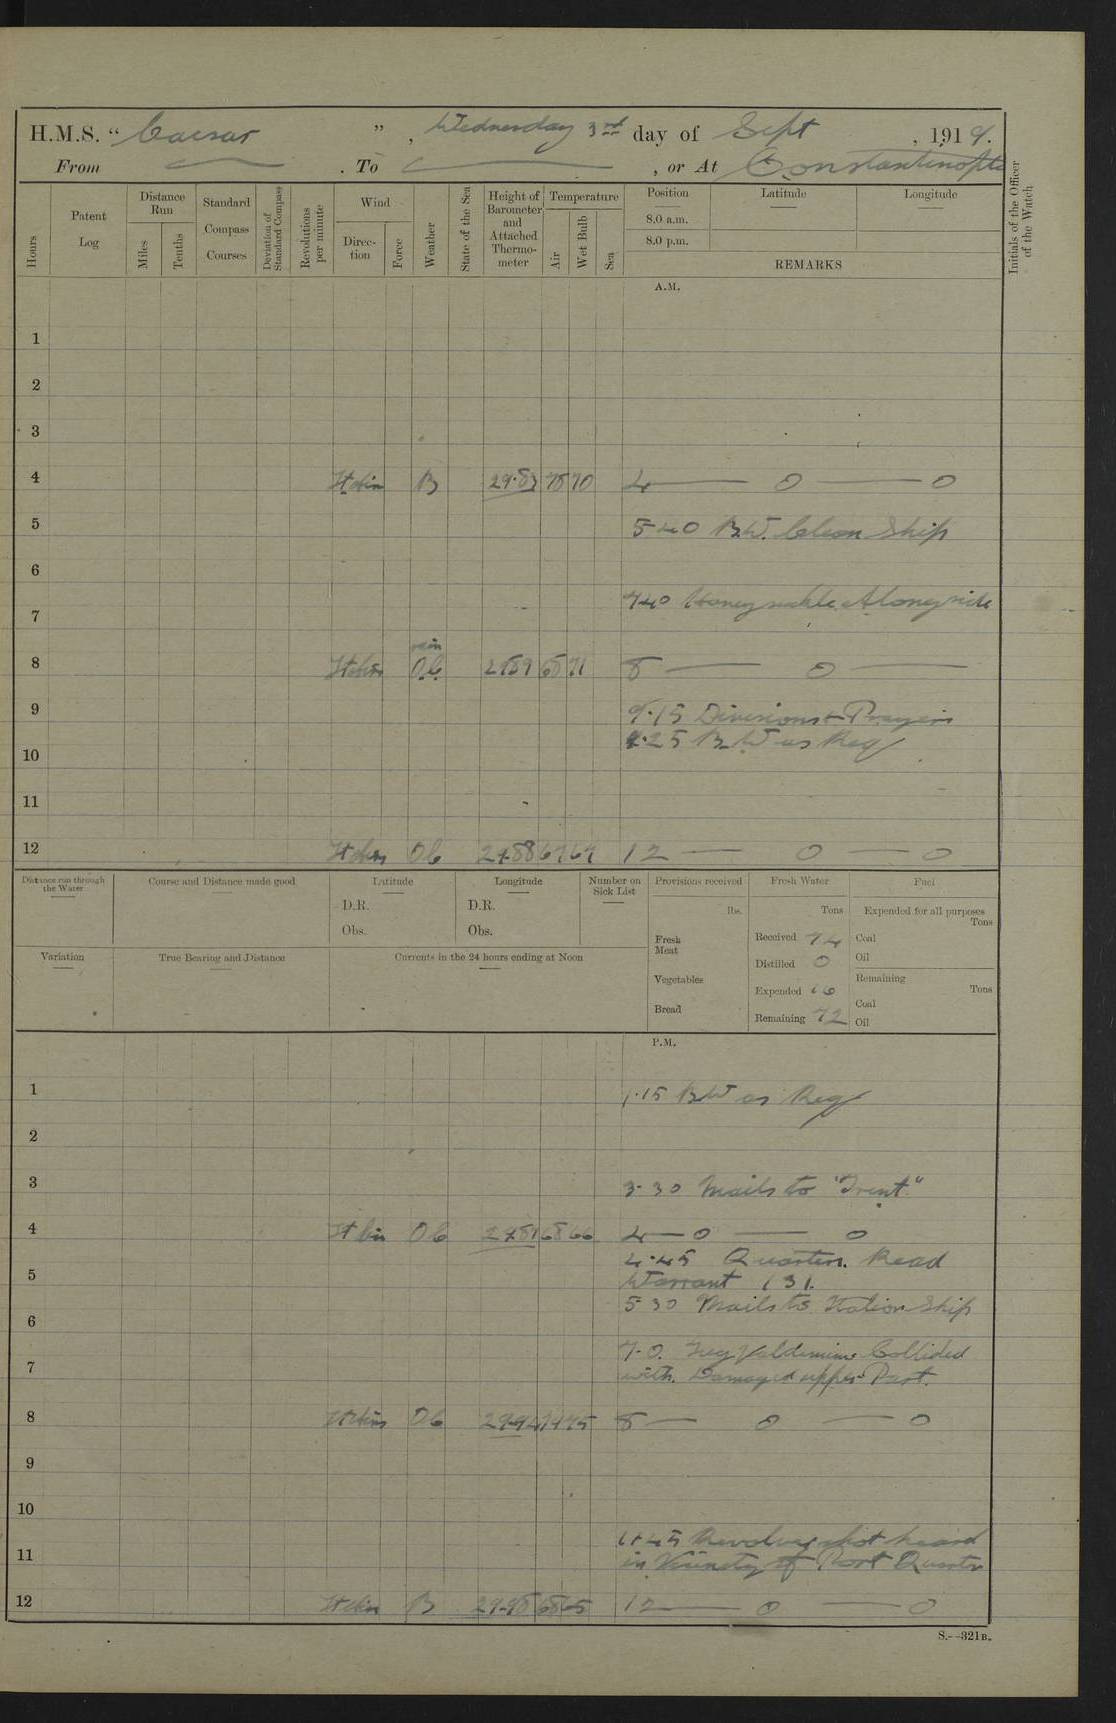 H.M.S. “ Caesar ” , Wednesday 3rd day of Sept , 1919.
From . To , or At Constantinople
Hours
Patent Log
Distance Run
Miles
Tenths
Standard Compass Courses
Deviation of Standard Compass
Revolutions per minute
Wind
Direc-tion
Force
Weather
State of the Sea
Height of Barometer and Attached Thermo-meter
Temperature
Air
Wet Bulb
Sea
Position
Latitude
Longitude
8.0 a.m.
8.0 p.m.
REMARKS
Initials of the Officer of the Watch
A.M.
1
2
3
4 B 29.83 78 70 4 — 0 — 0
5 5 40 B.W. Clean Ship
6
7 740 Honeysuckle Alongside
rain
8 O.C. 71 8 — 0 —
9 9.15 Divisions & Prayers
.25 B W as Req
10
11
12 OC 29.88 67 12 — 0 — 0
Distance run through the Water
Course and Distance made good
Latitude
Longitude
Number on Sick List
Provisions received
Fresh Water
Fuel
D.R.
D.R.
lbs.
Tons
Expended for all purposes
Tons
Obs.
Obs.
Fresh Meat
Received 74
Coal
Variation
True Bearing and Distance
Currents in the 24 hours ending at Noon
Distilled 0
Oil
Vegetables
Remaining
Expended 16
Tons
Bread
Coal
Remaining 72
Oil
P.M.
1 1.15 BW as Req
2
3 3.30 Mails to "Trent"
4 OC 68 66 4 — 0 — 0
4.45 Quarters. Read
5 Warrant 131.
5 30 Mails to Station Ship
6
7.0. Collided
7 with. Damaged upper Part.
8 OC 8 — 0 — 0
9
10
11.45 Revolver shot heard
11 in Vicinity of Port Quarter
12 B 29.98 68 65 12 — 0 — 0
S.—321B.